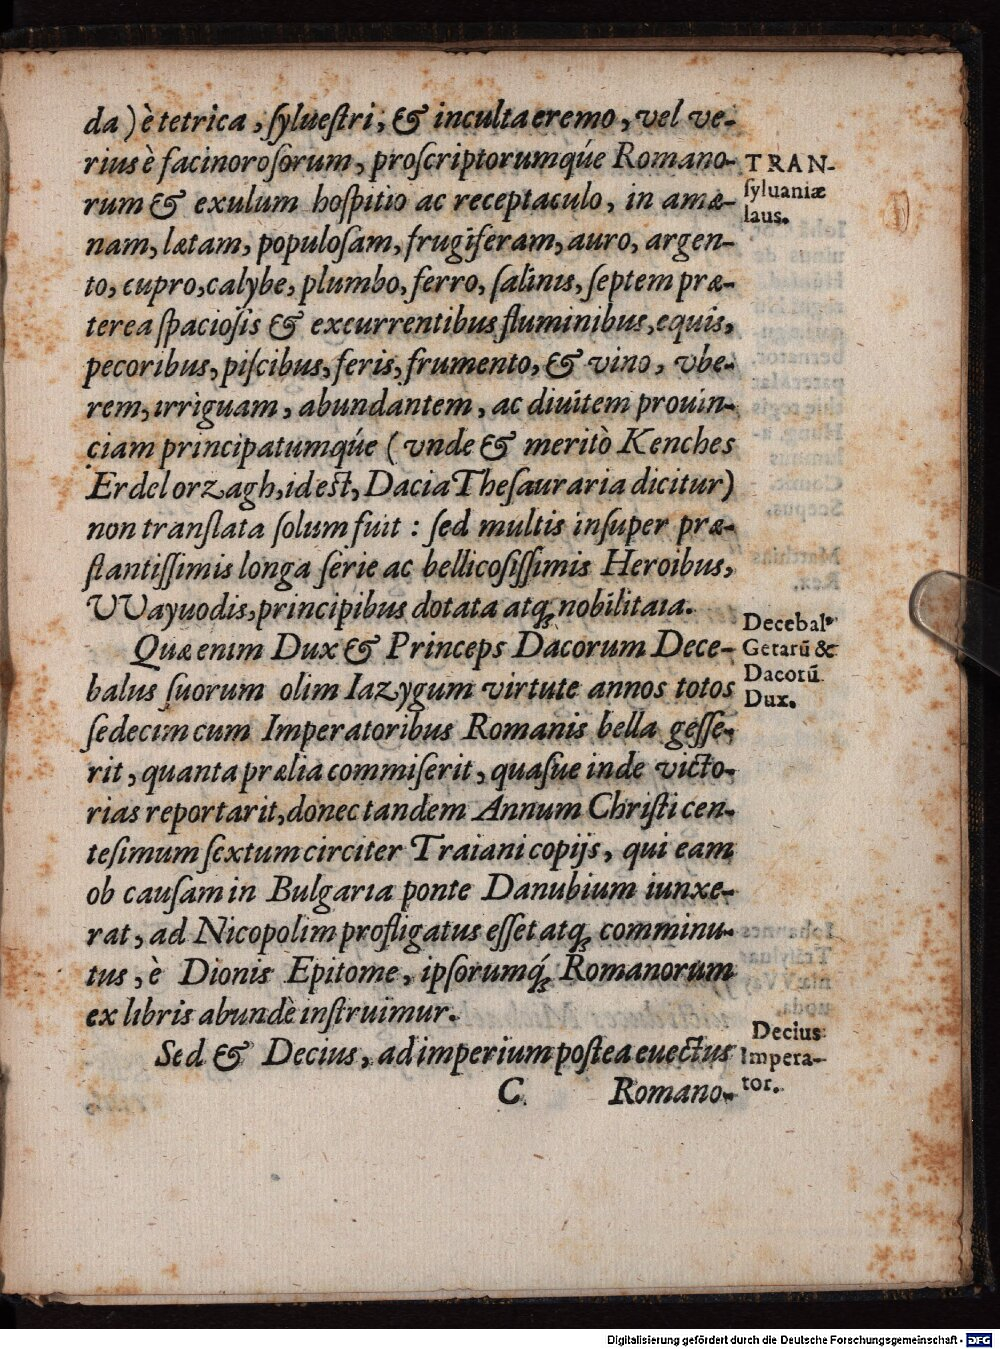 da) è tetrica, ſylueſtri, & inculta eremo, vel ve-
rius è facinoroſorum, proſcriptorumqúe Romano-
rum & exulum hoſpitio ac receptaculo, in amæ-
nam, lætam, populoſam, frugiferam, auro, argen-
to, cupro, calybe, plumbo, ferro, ſalinis, ſeptem præ-
terea ſpacioſis & excurrentibus fluminibus, equis,
pecoribus, piſcibus, feris, frumento, & vino, vbe-
rem, irriguam, abundantem, ac diuitem prouin-
ciam principatumqúe (vnde & meritò Kenches
Erdel orzagh, id est, Dacia Theſauraria dicitur)
non translata ſolum fuit: ſed multis inſuper præ-
ſtantiſſimis longa ſerie ac bellicoſiſſimis Heroibus,
VVayuodis, principibus dotata atqꝫ nobilitata.
TRAN-
ſyluaniæ
laus.
Quæ enim Dux & Princeps Dacorum Dece-
balus ſuorum olim Iazygum virtute annos totos
ſedecim cum Imperatoribus Romanis bella geſſe-
rit, quanta prælia commiſerit, quaſue inde victo-
rias reportarit, donec tandem Annum Chriſti cen-
teſimum ſextum circiter Traiani copijs, qui eam
ob cauſam in Bulgaria ponte Danubium iunxe-
rat, ad Nicopolim profligatus eſſet atqꝫ comminu-
tus, è Dionis Epitome, ipſorumqꝫ́ Romanorum
ex libris abundè inſtruimur.
Decebalꝰ
Getarū &
Dacorū
Dux.
Sed & Decius, ad imperium poſtea euectus
Decius
Impera-
tor.
C Romano-
Digitalisierung gefördert durch die Deutsche Forschungsgemeinschaft - DFG